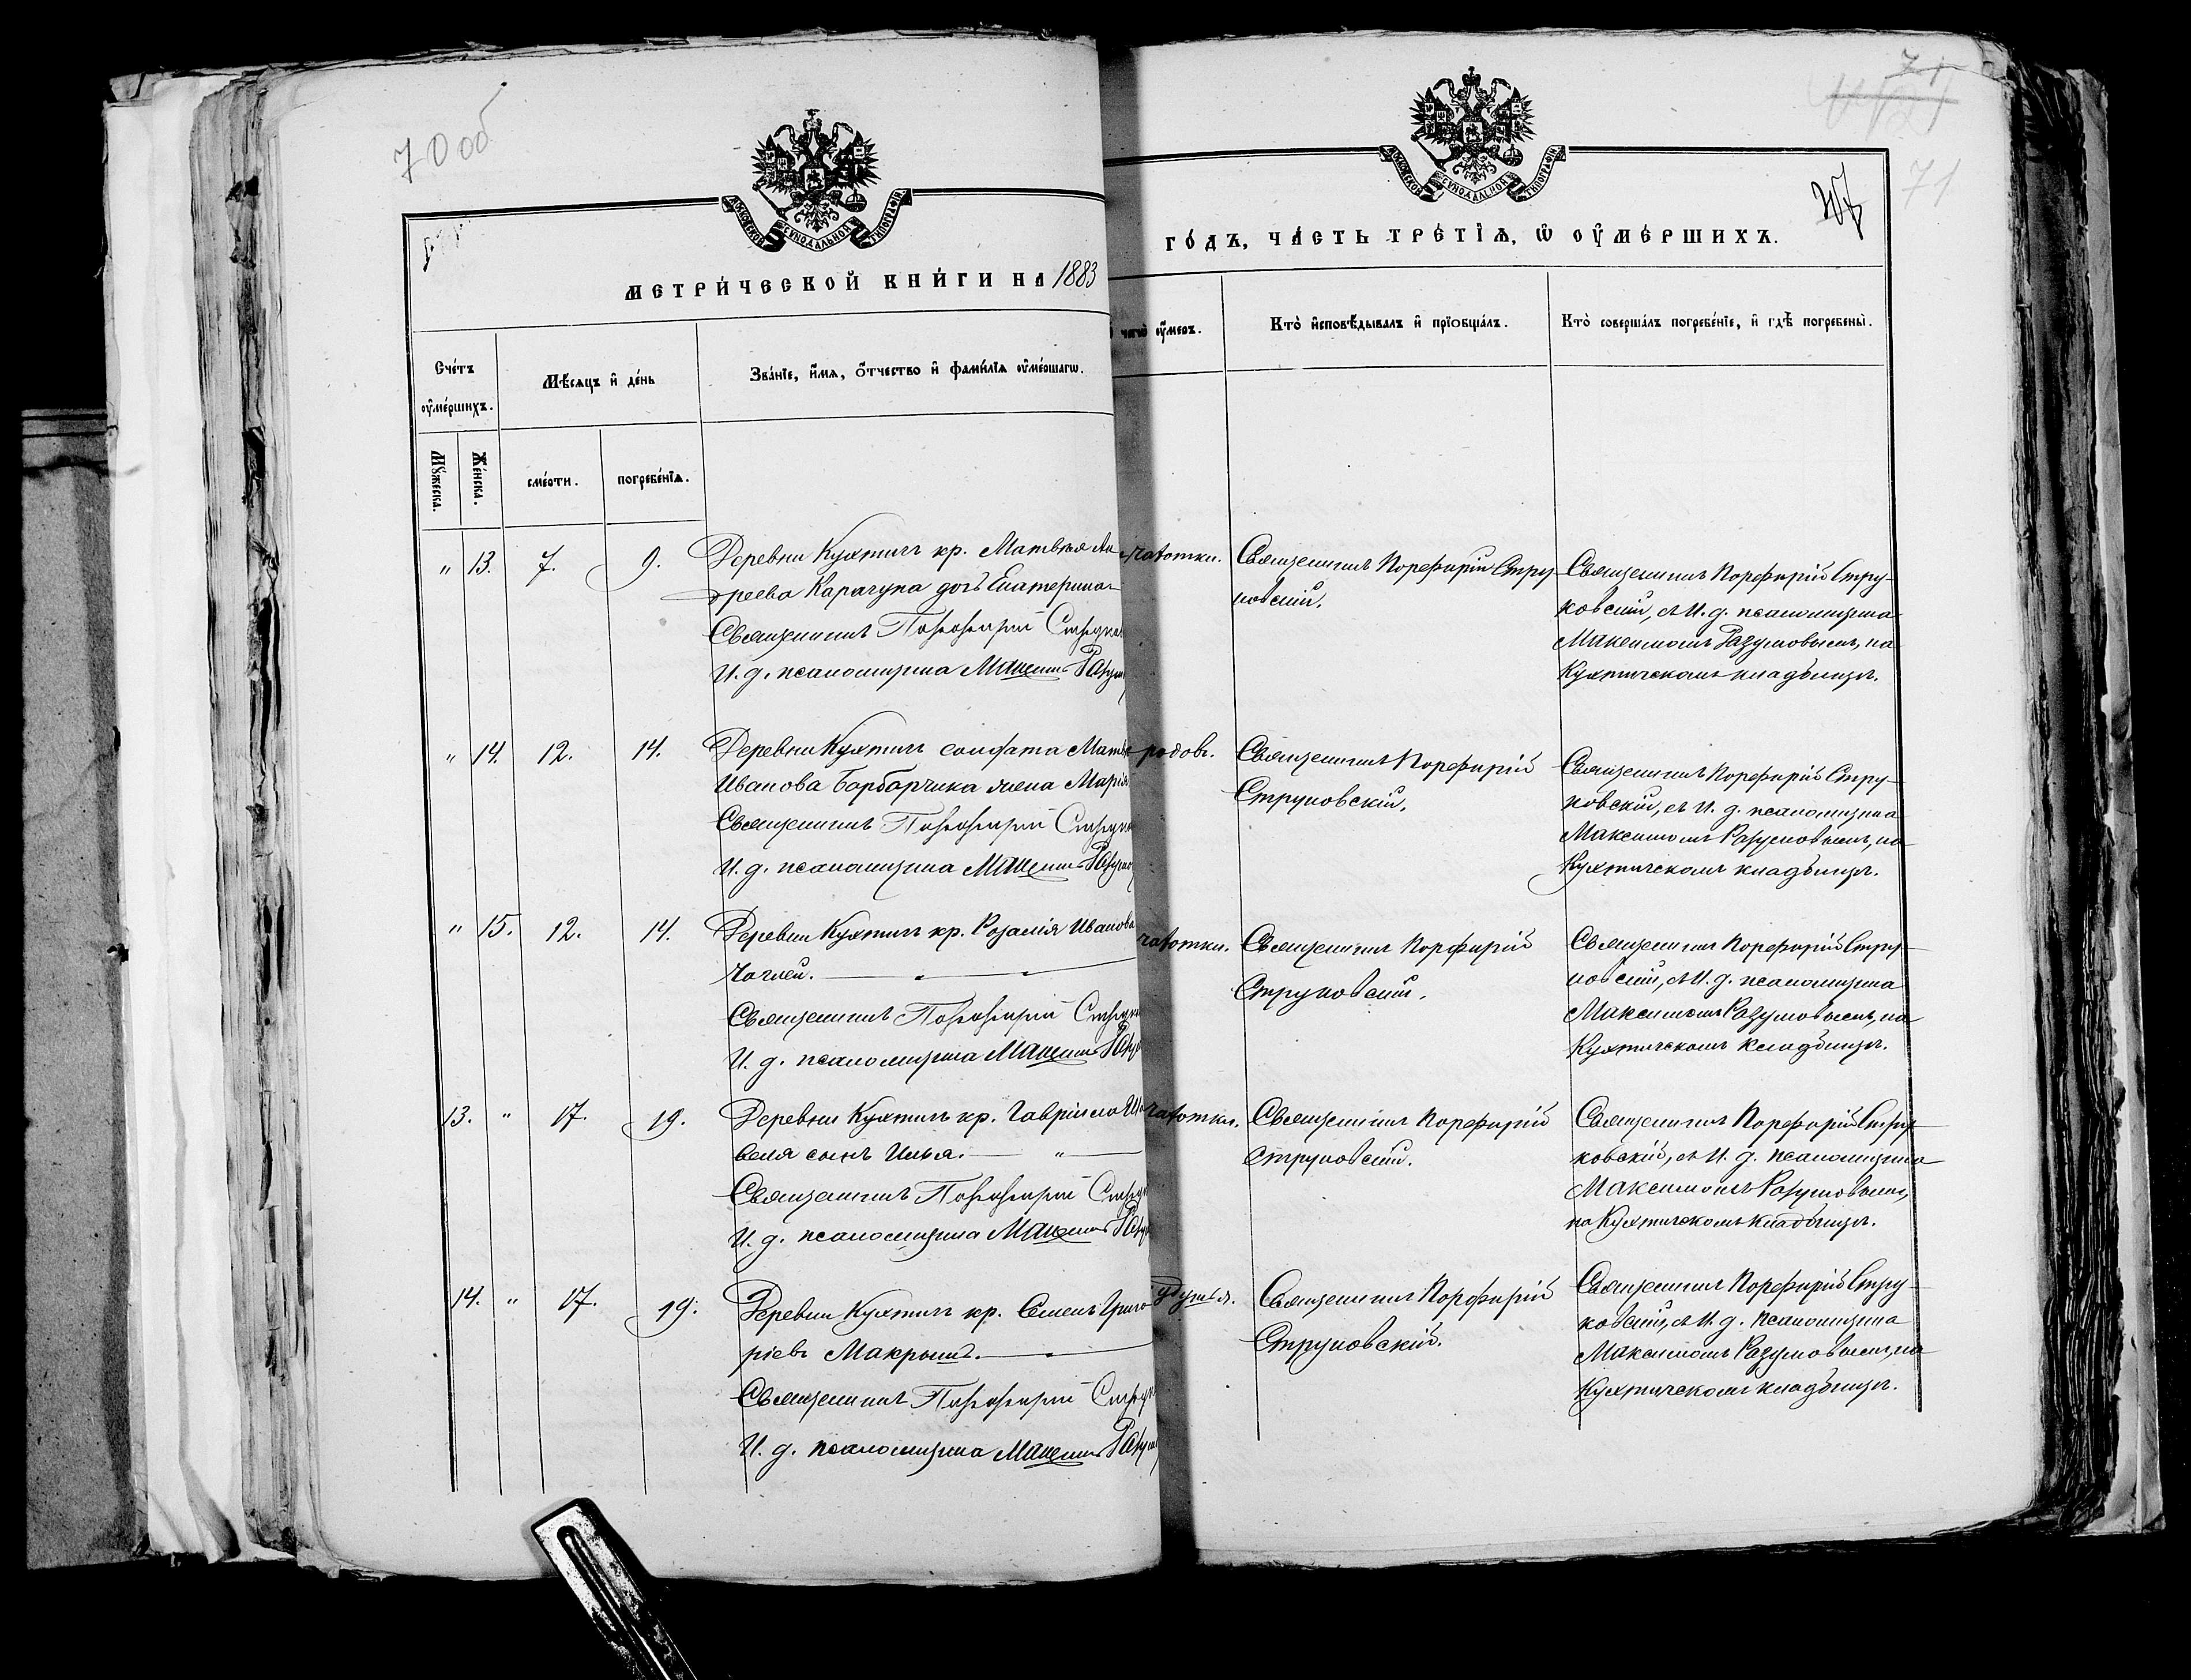 70 об
71
71
МЕТРИ́ЧЕСКОЙ КНИ́ГИ НА 1883
ГО́ДЪ, ЧА́СТЬ ТРЕ́ТІѦ, Ѿ ОУ҆МЕ́РШИХЪ.
Сче́тъ оу҆ме́ршихъ.
Мѣ́сяцъ и҆ де́нь
Зва́нїе, и҆́мѧ, ѻ҆́тчество и҆ фами́лїѧ оу҆ме́ршагѡ.
чегѡ̀ оу҆́меръ.
Кто̀ и҆сповѣ́дывалъ и҆ прїобща́лъ.
Кто̀ соверша́лъ погребе́нїе, и҆ гдѣ̀ погребены̀.
Мꙋ́жеска.
Же́нска.
сме́рти.
погребе́нїѧ.
" 13. 7. 9.
Деревни Кухтичъ кр. Матвѣя Ан
дреева Карачуна дочь Екатерина
Священникъ Порфирій Струко
И. д. псаломщика Максимъ Разум
чахотки.
Священникъ Порфирій Стру
ковскій.
Священникъ Порфирій Стру-
ковскій, съ И. д. псаломщика
Максимомъ Разумовымъ, на
Кухтичскомъ кладбищѣ.
" 14. 12. 14.
Деревни Кухтичъ солдата Матвѣ
Иванова Барбарчика жена Марія
Священникъ Порфирій Струко
И. д. псаломщика Максимъ Разумо
родовъ.
Священникъ Порфирій
Струковскій.
Священникъ Порфирій Стру-
ковскій, съ И. д. псаломщика
Максимомъ Разумовымъ, на
Кухтичскомъ кладбищѣ.
" 15. 12. 14.
Деревни Кухтичъ кр. Розалія Иванова
Священникъ Порфирій Струко
И. д. псаломщика Максимъ Разу
чахотки.
Священникъ Порфирій
Струковскій.
Священникъ Порфирій Стру-
ковскій, съ И. д. псаломщика
Максимомъ Разумовымъ, на
Кухтичскомъ кладбищѣ.
13. " 17. 19.
Деревни Кухтичъ кр. Гавріила
веля сынъ Илья. "
Священникъ Порфирій Струк
И. д. псаломщика Максимъ Разу
чахотки.
Священникъ Порфирій
Струковскій.
Священникъ Порфирій Стру-
ковскій, съ И. д. псаломщика
Максимомъ Разумовымъ,
на Кухтичскомъ кладбищѣ.
14. " 17. 19.
Деревни Кухтичъ кр. Семенъ Григо
ріевъ Макрышъ.
Священникъ Порфирій Струк
И. д. псаломщика Максимъ Разум
Священникъ Порфирій
Струковскій.
Священникъ Порфирій Стру-
ковскій, съ И. д. псаломщика
Максимомъ Разумовымъ, на
Кухтичскомъ кладбищѣ.